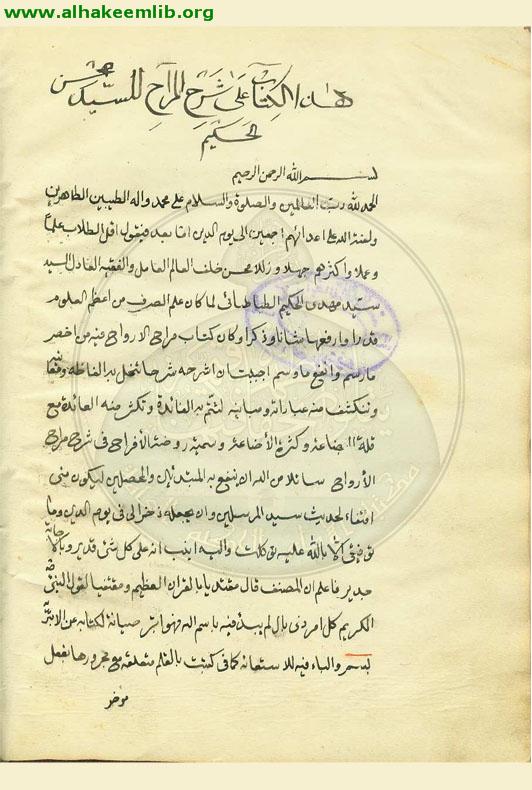 www.alhakeemlib.org
هذا الكتاب على شرح المراح للسيد محسن
الحكيم
بسم الله الرحمن الرحيم
الحمد لله رب العالمين والصلوة والسلام على محمد واله الطيبين الطاهرين
ولعنة الله على اعدائهم اجمعين الى يوم الدين اما بعد فيقول اقل الطلاب علما
وعملا واكثرهم جهلا وزللا محسن خلف العالم العامل والفقيه العادل السيد
سيد مهدى الحكيم الطباطبائى لما كان علم الصرف من اعظم العلوم
قدرا وارفعها شانا وذكرا وكان كتاب مراح الارواح فيه من اخصر
ما رسم وانفع ما وسم اجببت ان اشرحه شرحا تنحل به الفاظه ومعانيه
وتنكشف منه عباراته ومبانيه لتتم به الفائدة وتكثر منه العائدة مع
قلة البضاعة وكثرة الأضاعة وسميته روضة الأفراح فى شرح مراح
الأرواح سائلا من الله ان ينفع به المبتدئين والمحصلين ليكون منى
اقتفاء لحديث سيد المرسلين وان يجعله ذخرا لى فى يوم الدين وما
توفيقى الا بالله عليه توكلت واليه انيب انه على كل شئ قدير وبالاجابة
جدير فاعلم ان المصنف قال مقتديا بالقران العظيم ومقتفيا لقول النبى
الكريم كل امر ذى بال لم يبدء فيه باسم الله فهو ابتر صيانة لكتابه عن الابتر
بسم والباء فيه للاستعانة كما فى كتبت بالقلم متعلقة مع مجرورها بفعل
موخر